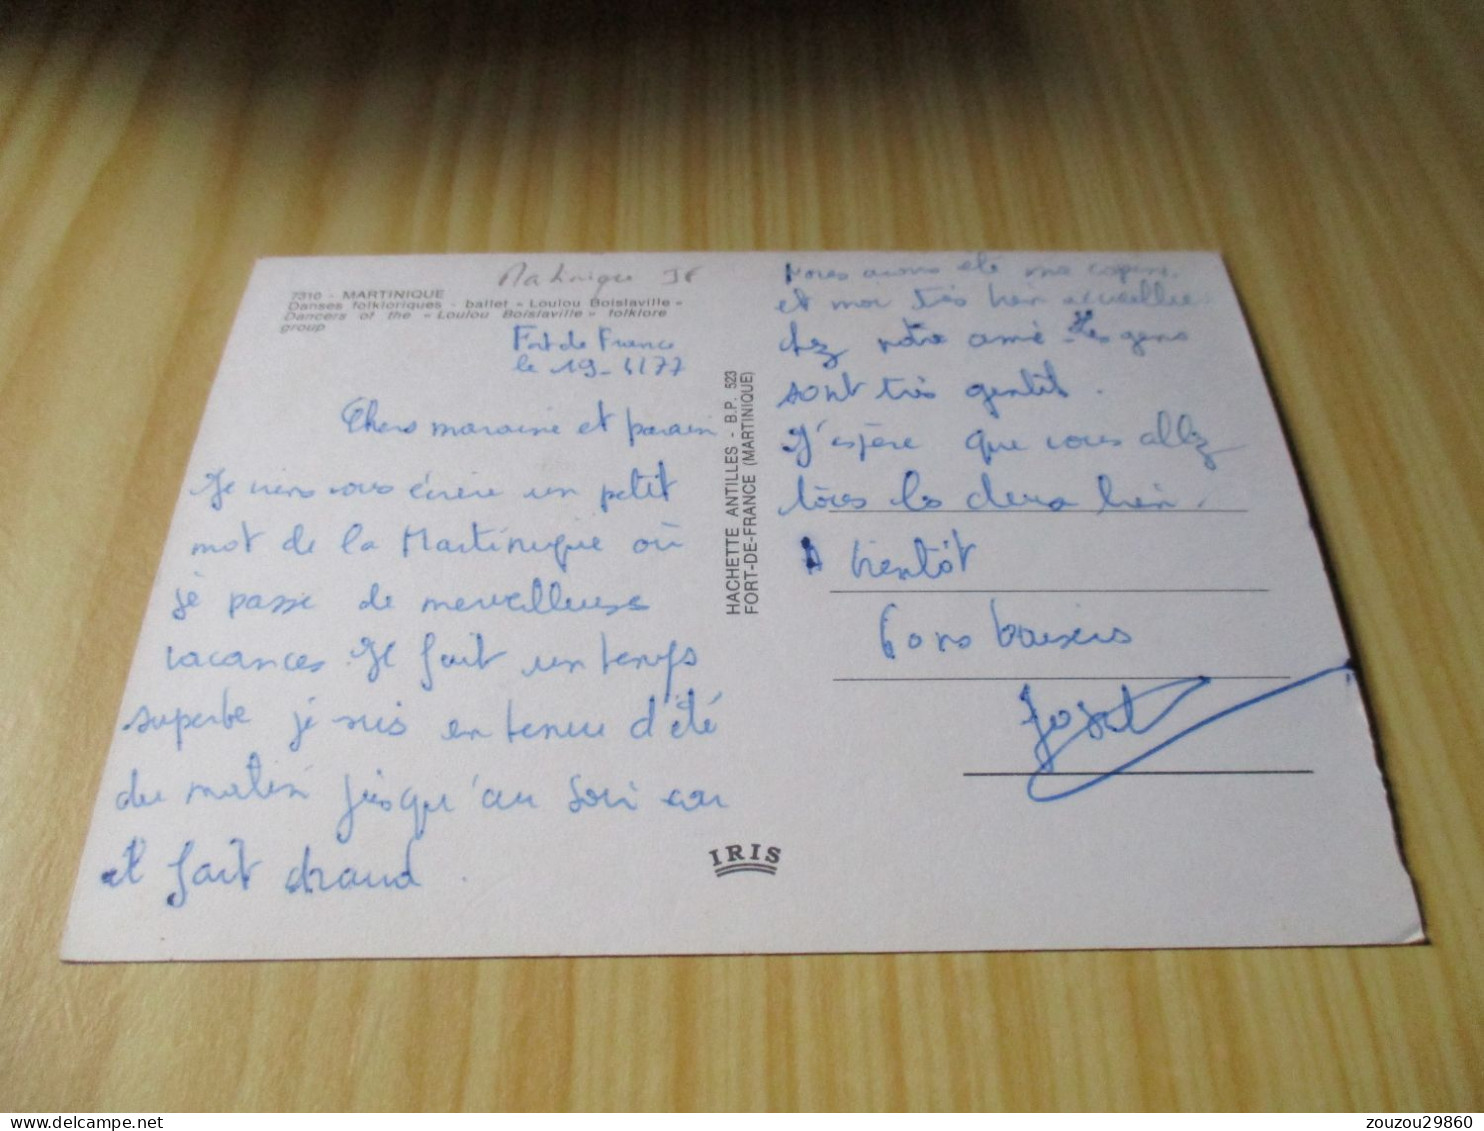 Martinique 5€
7310 - MARTINIQUE
Danses folkloriques - ballet « Loulou Boislaville »
Dancers of the « Loulou Boislaville » folklore
group
Fort de France
le 19-4177
Chers marraine et parain
Je viens vous écrire un petit
mot de la Martinique où
je passe de merveilleuse
vacances. Il fait un temps
superbe je suis en tenue d'été
du matin jusqu'au soir car
il fait chaud
HACHETTE ANTILLES - B.P. 523
FORT-DE-FRANCE (MARTINIQUE)
IRIS
Nous avons été ma copine
et moi très bien accueillie
chez notre amie les gens
sont très gentils.
J'espère que vous allez
tous les deux bien.
A bientôt
Bons baisers
zouzou29860